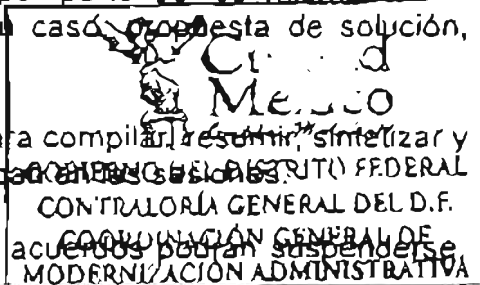 caso, propuesta de solución,
Ciudad
México
ra compilar, resumir, sintetizar y
en las sesiones.
GOBIERNO DEL DISTRITO FEDERAL
CONTRALORÍA GENERAL DEL D.F.
acuerdos podrán suspenderse
COORDINACIÓN GENERAL DE
MODERNIZACIÓN ADMINISTRATIVA